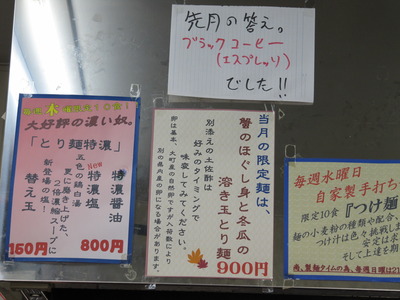 先月の答え。
ブラックコーヒー
(エスプレッソ)
でした!!
大好評の濃い奴。
「とり麺特濃」
特濃醤油
New
特濃塩
800円
五色の鶏白湯
更に磨き上げた、
つけ倍濃縮スープに
新登場の塩!
替え玉
150円
当月の限定麺は、
蟹のほぐし身と冬瓜の
溶き玉とり麺
900円
別添えの土佐酢は
好みのタイミングで
味変してみてください。
毎週水曜日
自家製手打ち
限定10食『つけ麺
麺の小麦粉の種類や配合、
つけ汁は色々挑戦し
安定は求
そして上達を期